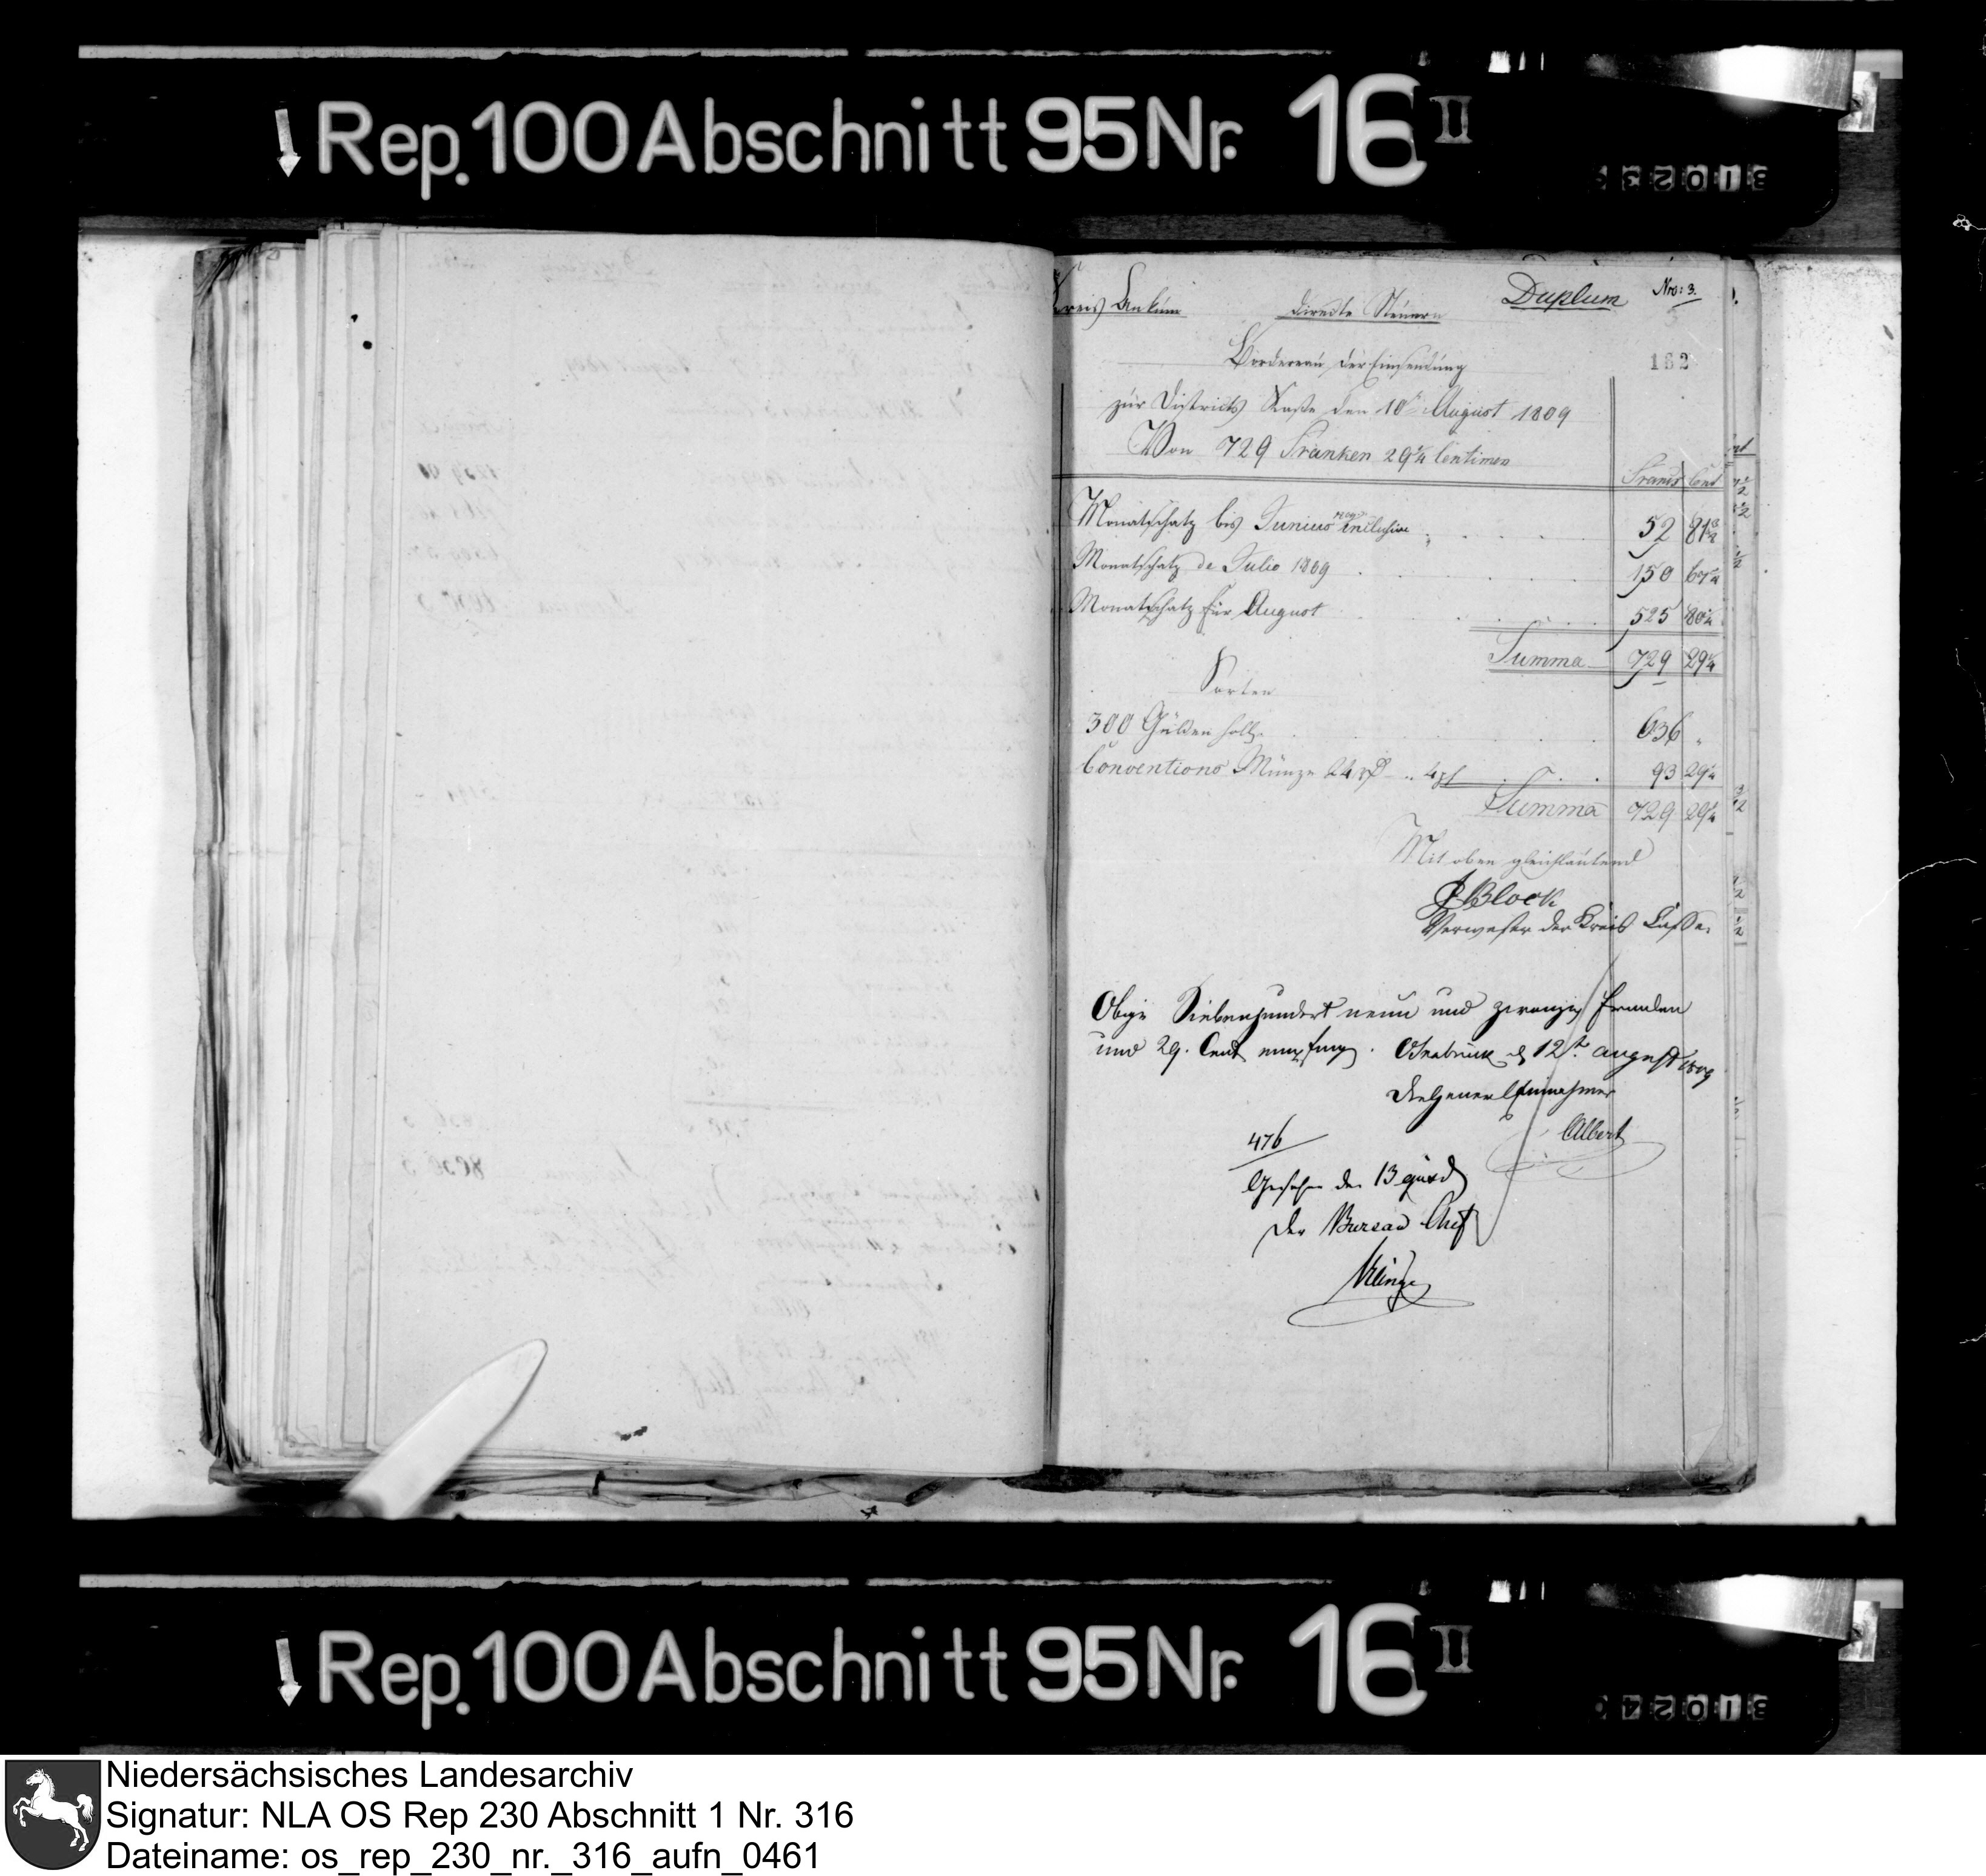 Rep. 100 Abschnitt 95 Nr. 16 II
Kreis Ankum
directe Steuern
Duplum
Nro: 3.
182
Bordereau der Einsendung
zur Districts Kasse den 10t August 1809
Von 729 Franken 29¼ Centimen
Francs Cent
Monatschatz bis Junius inclusive 52 81¾
Monatschatz de Julio 1809 150 67¼
Monatschatz für August 525 80¼
Summa 729 29¼
Sorten
300 Gulden holl. 636 "
Conventions Münze 24 rp .. 4 pf 93 29¼
Summa 729 29¼
Mit oben gleichlautend
Block
Verweser der Kreis Casse.
Obige Siebenhundert neun und zwanzig Franken
und 29. Cent empfing. Osnabrück d 12t. august 1809
Der General Einnehmer
Albert
476
Gesehen den 13
Der Bureau Chef
Rep. 100 Abschnitt 95 Nr. 16 II
Niedersächsisches Landesarchiv
Signatur: NLA OS Rep 230 Abschnitt 1 Nr. 316
Dateiname: os_rep_230_nr._316_aufn_0461